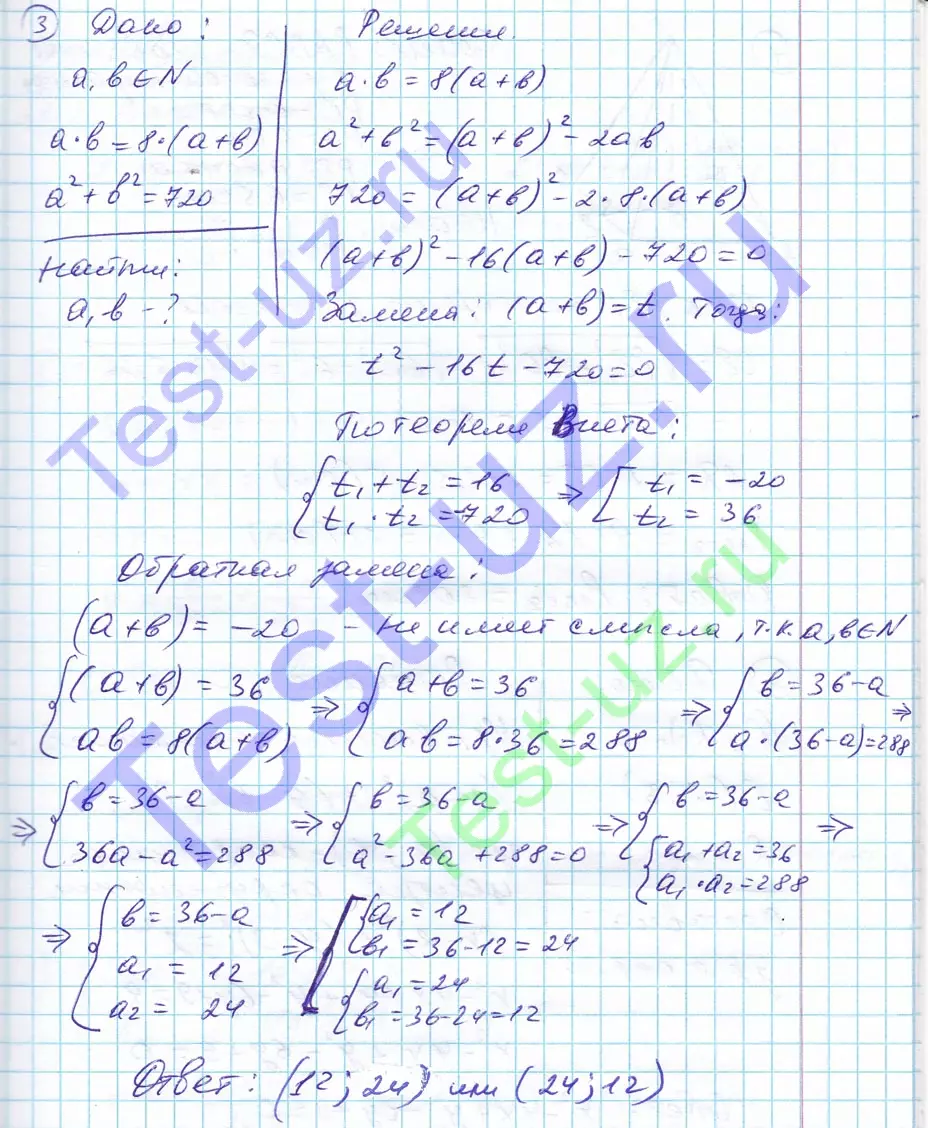 ③ Дано:
a, b ∈ N
a·b = 8·(a+b)
a² + b² = 720
Найти:
a, b - ?
Решение.
a·b = 8(a+b)
a² + b² = (a+b)² - 2ab
720 = (a+b)² - 2·8·(a+b)
(a+b)² - 16(a+b) - 720 = 0
Замена: (a+b) = t. Тогда:
t² - 16t - 720 = 0
По теореме Виета:
{ t₁ + t₂ = 16 ⇒ [ t₁ = -20
{ t₁ · t₂ = -720 [ t₂ = 36
Обратная замена:
(a+b) = -20 - не имеет смысла, т.к. a, b ∈ N
{ (a+b) = 36 ⇒ { a+b = 36 ⇒ { b = 36-a ⇒
{ ab = 8(a+b) { ab = 8·36 = 288 { a·(36-a) = 288
⇒ { b = 36-a ⇒ { b = 36-a ⇒ { b = 36-a ⇒
{ 36a - a² = 288 { a² - 36a + 288 = 0 { { a₁ + a₂ = 36
{ a₁ · a₂ = 288
⇒ { b = 36-a ⇒ [ { a₁ = 12
{ b₁ = 36-12 = 24
{ a₁ = 12 { a₁ = 24
{ a₂ = 24 { b₁ = 36-24 = 12
Ответ: (12; 24) или (24; 12)
Test-uz.ru
Test-uz.ru
Test-uz.ru